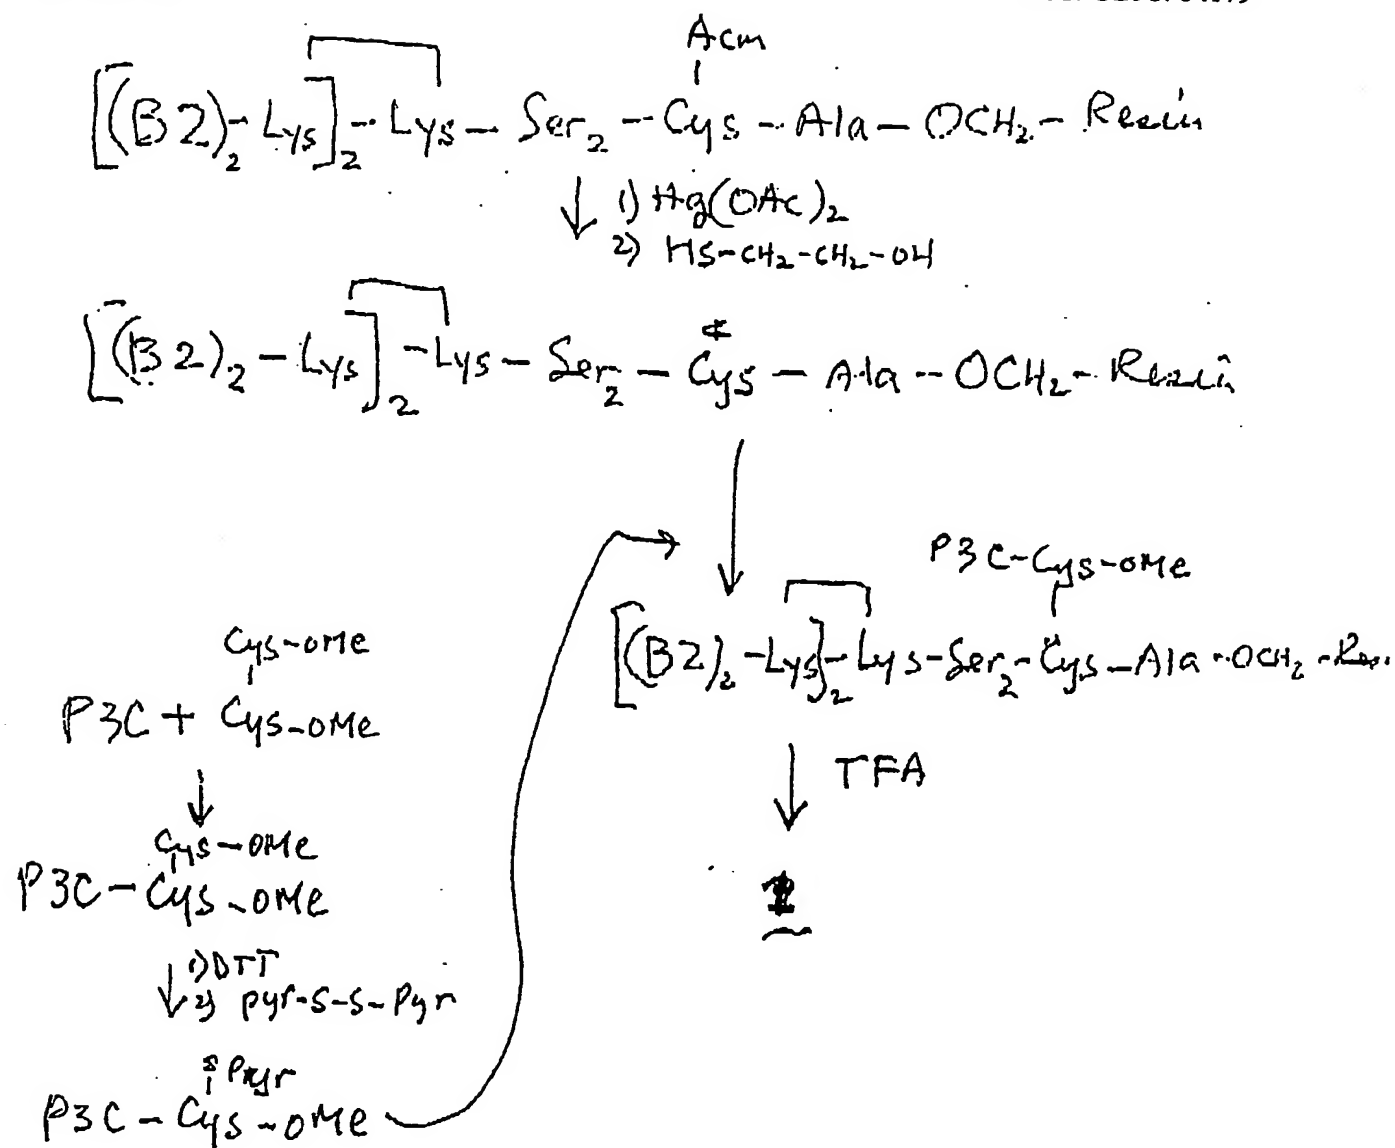 Acm
[(B2)₂-Lys]₂-Lys-Ser₂-Cys-Ala-OCH₂-Resin
↓ 1) Hg(OAc)₂
2) HS-CH₂-CH₂-OH
[(B2)₂-Lys]₂-Lys-Ser₂-Cys-Ala-OCH₂-Resin
P3C-Cys-OMe
[(B2)₂-Lys]₂-Lys-Ser₂-Cys-Ala-OCH₂-Res.
↓ TFA
1
Cys-OMe
P3C + Cys-OMe
↓
Cys-OMe
P3C-Cys-OMe
↓ 1) DTT
2) Pyr-S-S-Pyr
S Pyr
P3C-Cys-OMe